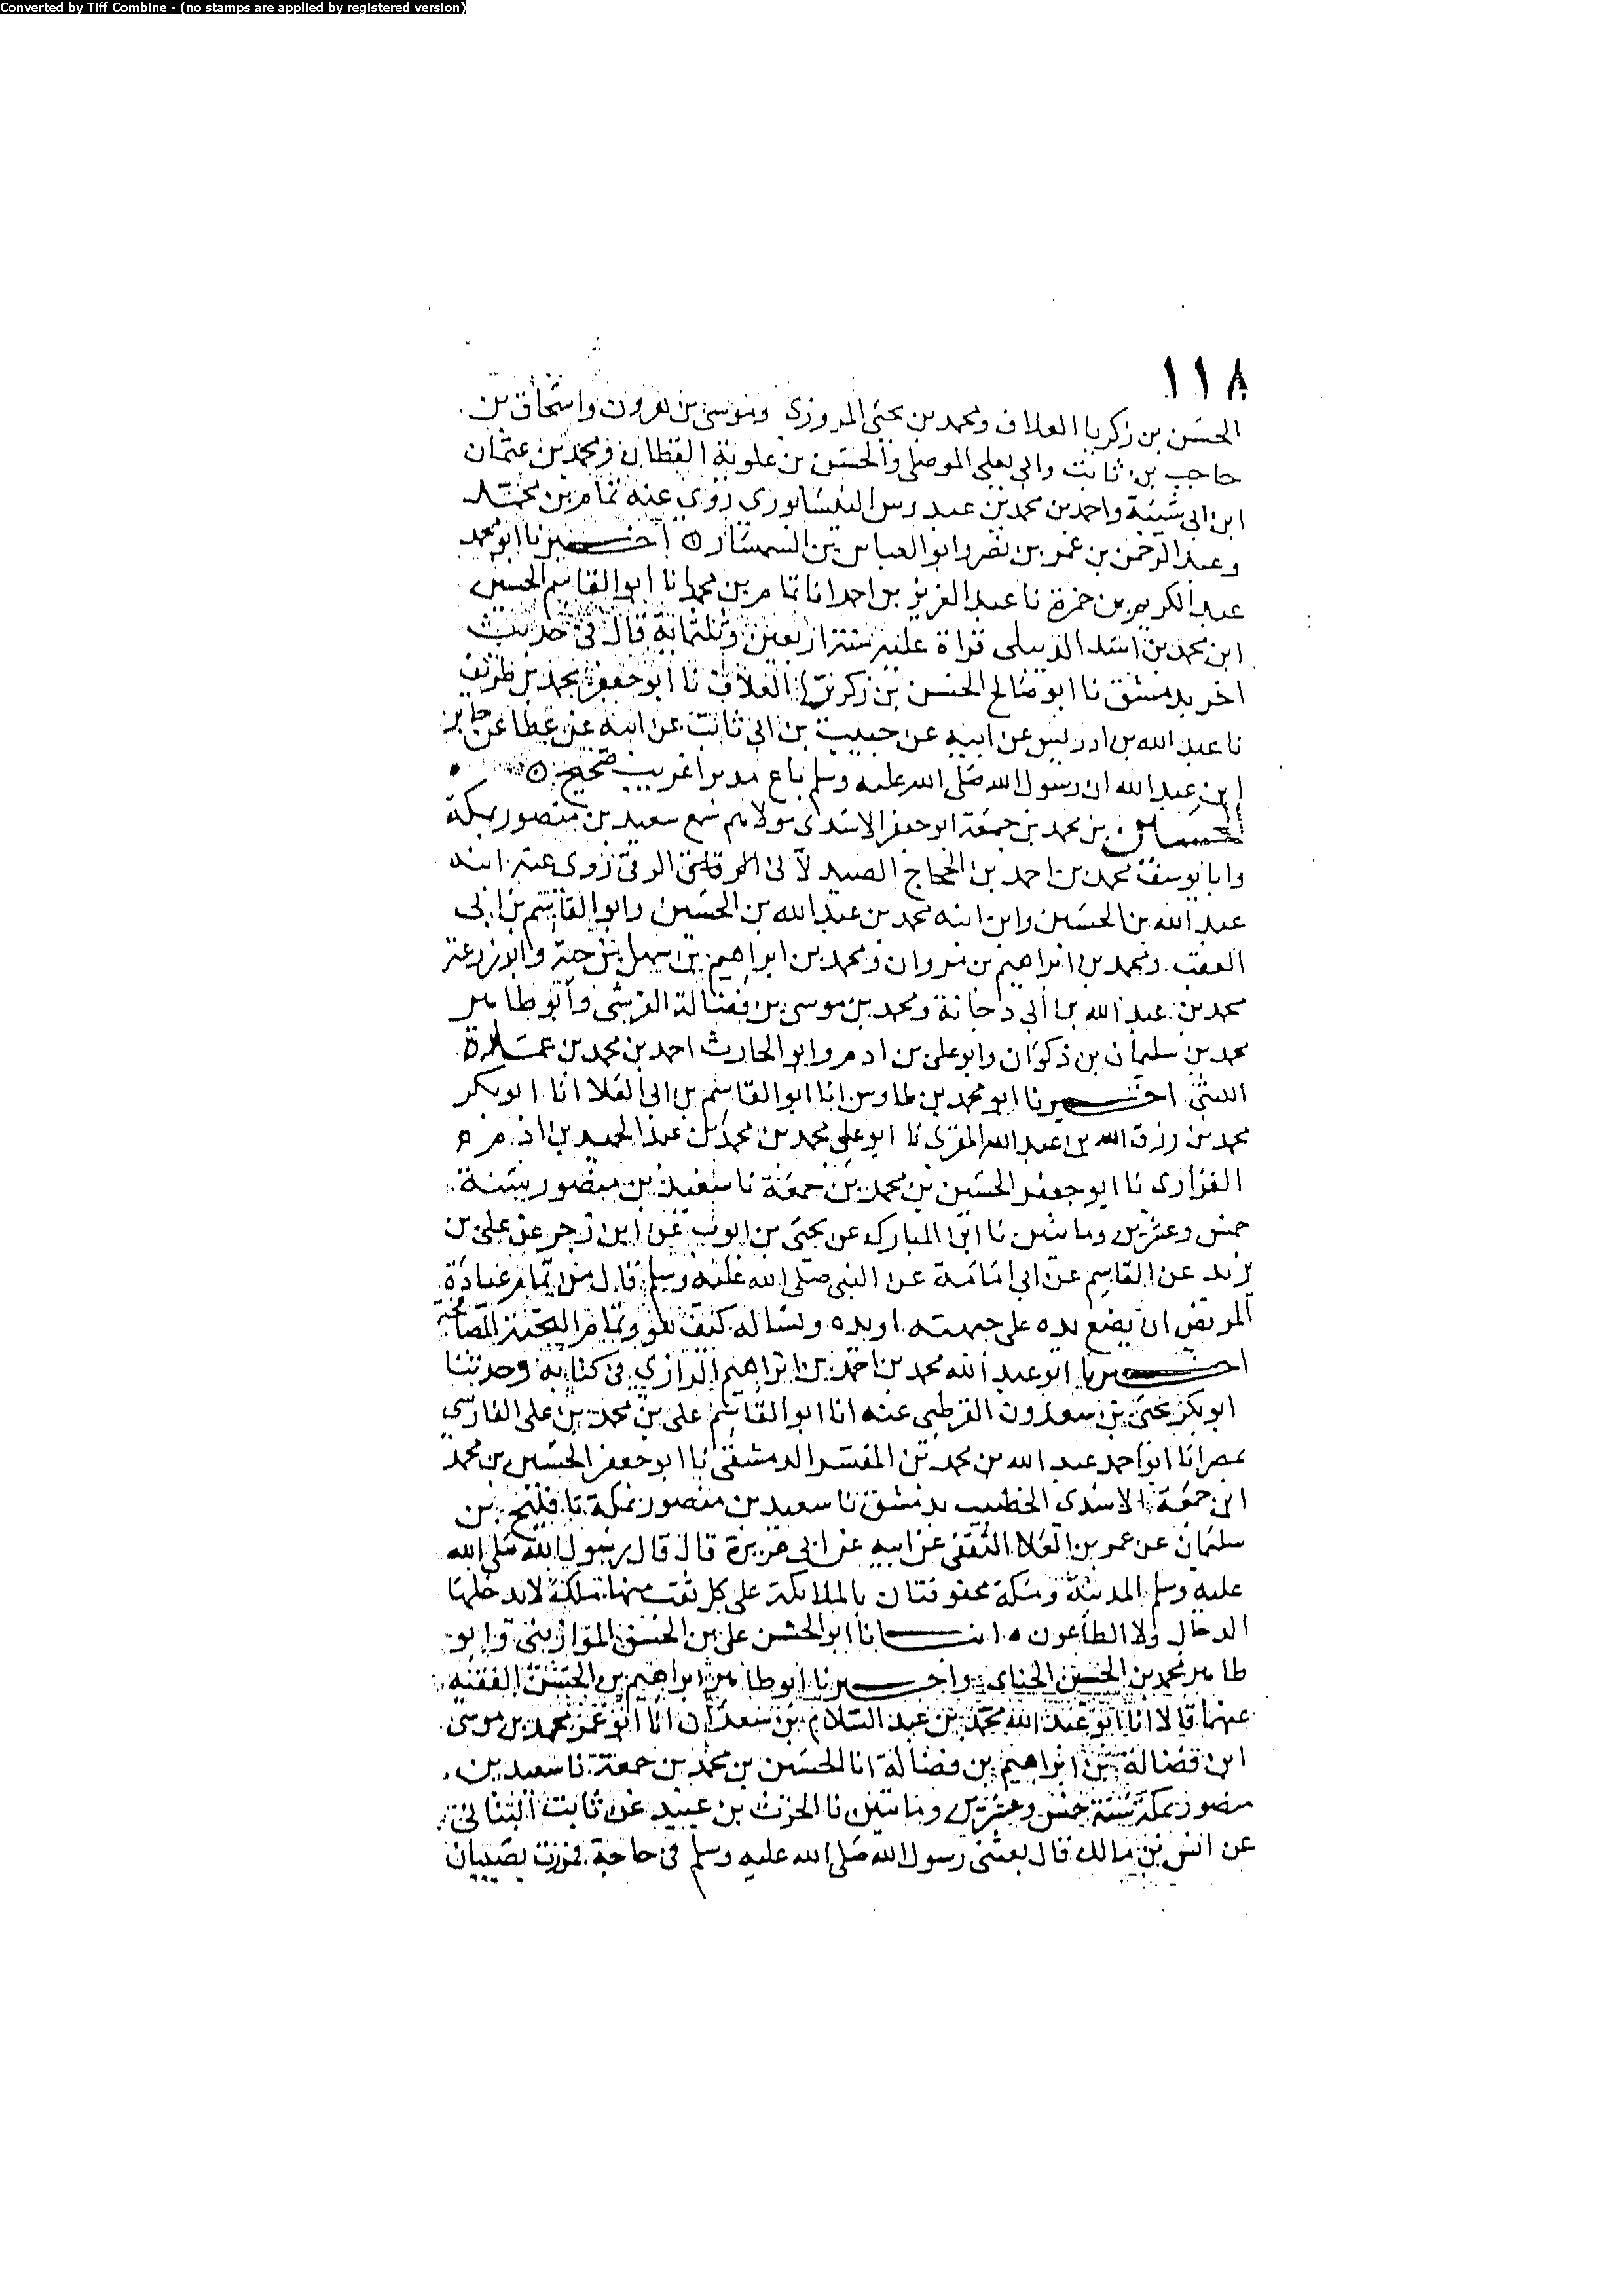 Converted by Tiff Combine - (no stamps are applied by registered version)
١١٨
الحسن بن زكريا العلاف ومحمد بن يحيى المروزى وموسى بن هرون واسحاق بن
حاجب بن ثابت وابى يعلى الموصلى والحسن بن علوية القطان ومحمد بن عثمان
ابن ابى شيبة واحمد بن محمد بن عبدوس النيسابورى روى عنه تمام بن محمد
وعبد الرحمن بن عمر بن نصر وابو العباس بن السمسار اخبرنا ابو محمد
عبد الكريم بن حمزة نا عبد العزيز بن احمد انا تمام بن محمد انا ابو القاسم الحسين
ابن محمد بن اسد الديبلى قراة عليه سنة اربعين وثلثماية قال فى حديث
اخر بدمشق نا ابو صالح الحسن بن زكريا العلاف نا ابو جعفر محمد بن طريف
نا عبد الله بن ادريس عن ابيه عن حبيب بن ابى ثابت عن ابيه عن عطا عن جابر
ابن عبد الله ان رسول الله صلى الله عليه وسلم باع مدبرا غريب صحيح
الحسين بن محمد بن جمعة ابو جعفر الاسدى مولاهم سمع سعيد بن منصور بمكة
وابا يوسف محمد بن احمد بن الحجاج الصيدلانى الرقى روى عنه ابنه
عبد الله بن الحسين وابن ابنه محمد بن عبد الله بن الحسين وابو القاسم بن ابى
العقب ومحمد بن ابراهيم بن مروان ومحمد بن ابراهيم بن سهل بن حية وابو زرعة
محمد بن عبد الله بن ابى دجانة ومحمد بن موسى بن فضالة القرشى وابو طاهر
محمد بن سليمان بن ذكوان وابو على بن ادم وابو الحارث احمد بن محمد بن عمارة
الليثى اخبرنا ابو محمد بن طاوس انا ابو القاسم بن ابى العلا انا ابو بكر
محمد بن رزق الله بن عبد الله المقرى نا ابو على محمد بن محمد بن عبد الحميد بن ادم
الفزارى نا ابو جعفر الحسين بن محمد بن جمعة نا سعيد بن منصور سنة
خمس وعشرين وماتين نا ابن المبارك عن يحيى بن ايوب عن ابن زحر عن على بن
يزيد عن القاسم عن ابى امامة عن النبى صلى الله عليه وسلم قال من تمام عيادة
المريض ان يضع يده على جبهته او يده ويساله كيف هو وتمام التحية المصافحة
اخبرنا ابو عبد الله محمد بن احمد بن ابراهيم الرازى فى كتابه وحدثنا
ابو بكر يحيى بن سعدون القرطبى عنه انا ابو القاسم على بن محمد بن على الفارسى
بمصر انا ابو احمد عبد الله بن محمد بن المفسر الدمشقى نا ابو جعفر الحسين بن محمد
ابن جمعة الاسدى الخطيب بدمشق نا سعيد بن منصور بمكة نا فليح بن
سليمان عن عمر بن العلا الثقفى عن ابيه عن ابى هريرة قال قال رسول الله صلى الله
عليه وسلم المدينة ومكة محفوفتان بالملايكة على كل نقب منها ملك لا يدخلها
الدجال ولا الطاعون انبانا ابو الحسن على بن الحسن الموازينى وابو
طاهر محمد بن الحسين الحناى واخبرنا ابو طاهر ابراهيم بن الحسن الفقيه
عنهما قالا انا ابو عبد الله محمد بن عبد السلام بن سعدان انا ابو عمر محمد بن موسى
ابن فضالة بن ابراهيم بن فضالة انا الحسين بن محمد بن جمعة نا سعيد بن
منصور بمكة سنة خمس وعشرين وماتين نا الحرث بن عبيد عن ثابت البنانى
عن انس بن مالك قال بعثنى رسول الله صلى الله عليه وسلم فى حاجة فمررت بصبيان